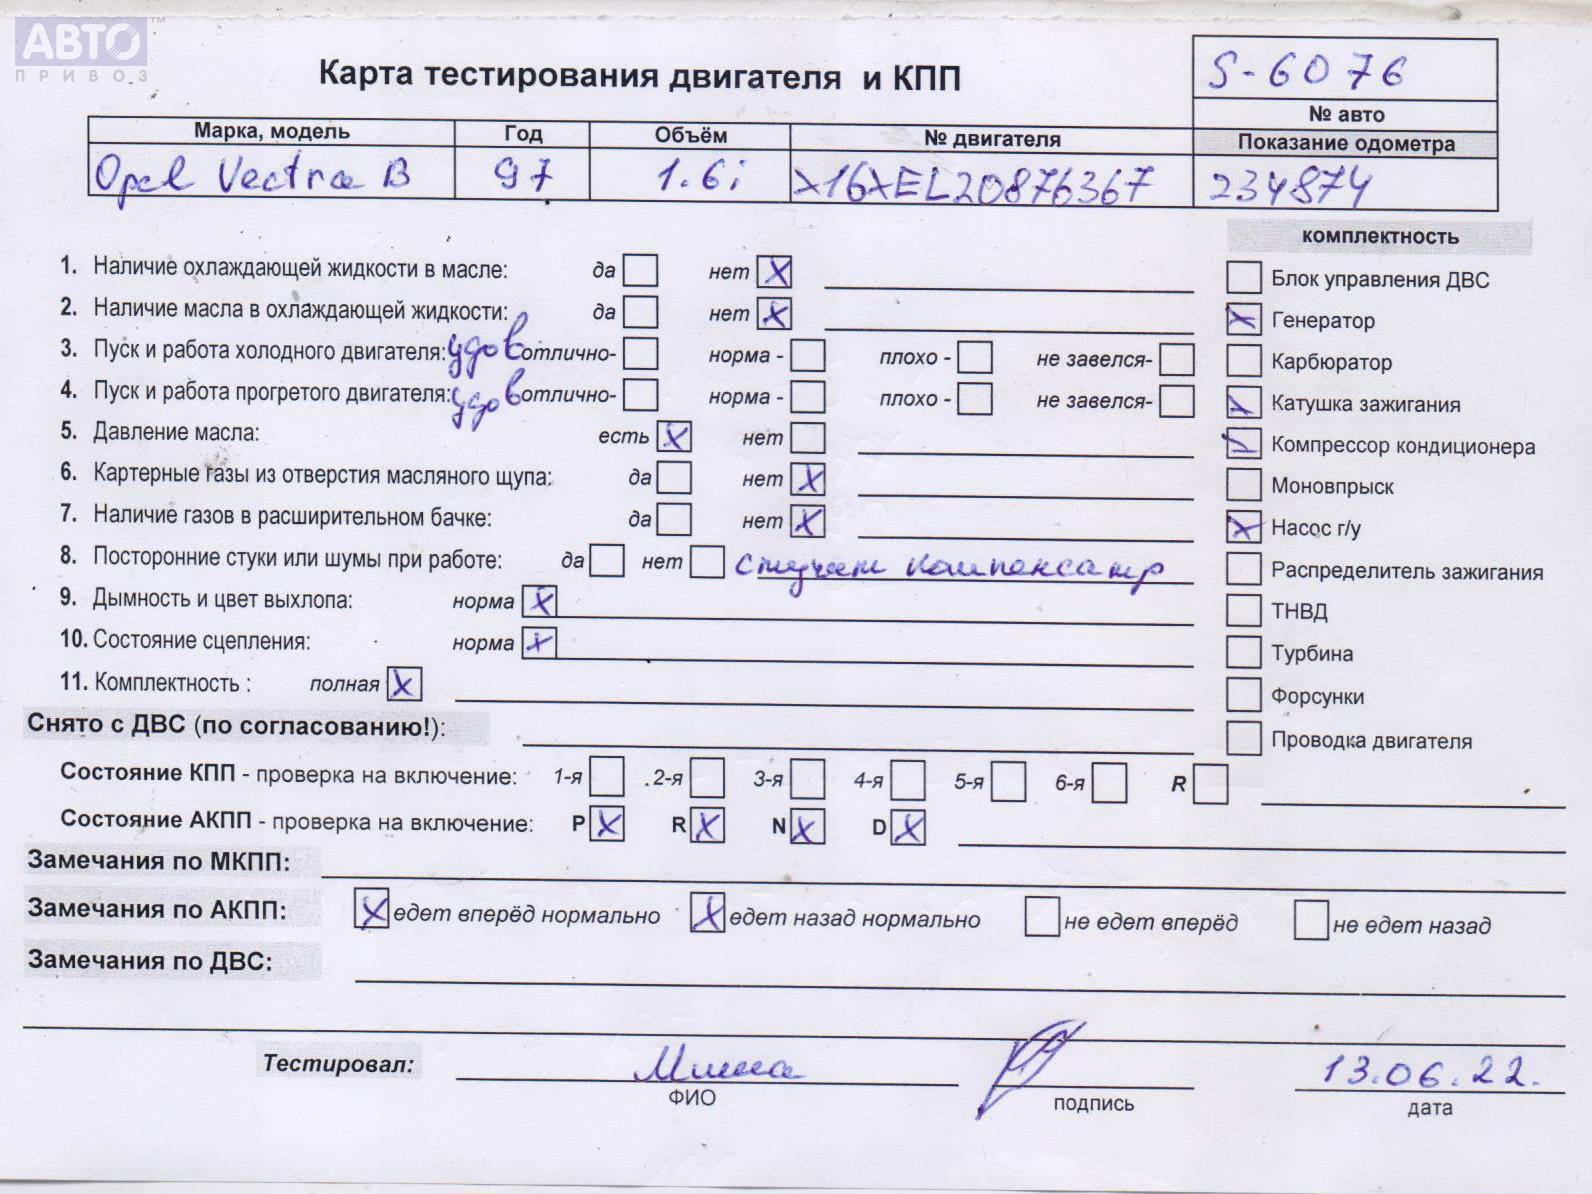 АВТО™
ПРИВОЗ
Карта тестирования двигателя и КПП
S-6076
№ авто
Марка, модель Год Объём № двигателя Показание одометра
Opel Vectra B 97 1.6i X16XEL20876367 234874
комплектность
1. Наличие охлаждающей жидкости в масле: да нет X
Блок управления ДВС
2. Наличие масла в охлаждающей жидкости: да нет X
X Генератор
3. Пуск и работа холодного двигателя: удов отлично- норма - плохо - не завелся-
Карбюратор
4. Пуск и работа прогретого двигателя: удов отлично- норма - плохо - не завелся-
X Катушка зажигания
5. Давление масла: есть X нет
Компрессор кондиционера
6. Картерные газы из отверстия масляного щупа: да нет X
Моновпрыск
7. Наличие газов в расширительном бачке: да нет X
X Насос г/у
8. Посторонние стуки или шумы при работе: да нет стучат компенсатр
Распределитель зажигания
9. Дымность и цвет выхлопа: норма X
ТНВД
10. Состояние сцепления: норма X
Турбина
11. Комплектность : полная X
Форсунки
Снято с ДВС (по согласованию!):
Проводка двигателя
Состояние КПП - проверка на включение: 1-я 2-я 3-я 4-я 5-я 6-я R
Состояние АКПП - проверка на включение: P X R X N X D X
Замечания по МКПП:
Замечания по АКПП: X едет вперёд нормально X едет назад нормально не едет вперёд не едет назад
Замечания по ДВС:
Тестировал: 13.06.22.
ФИО подпись дата